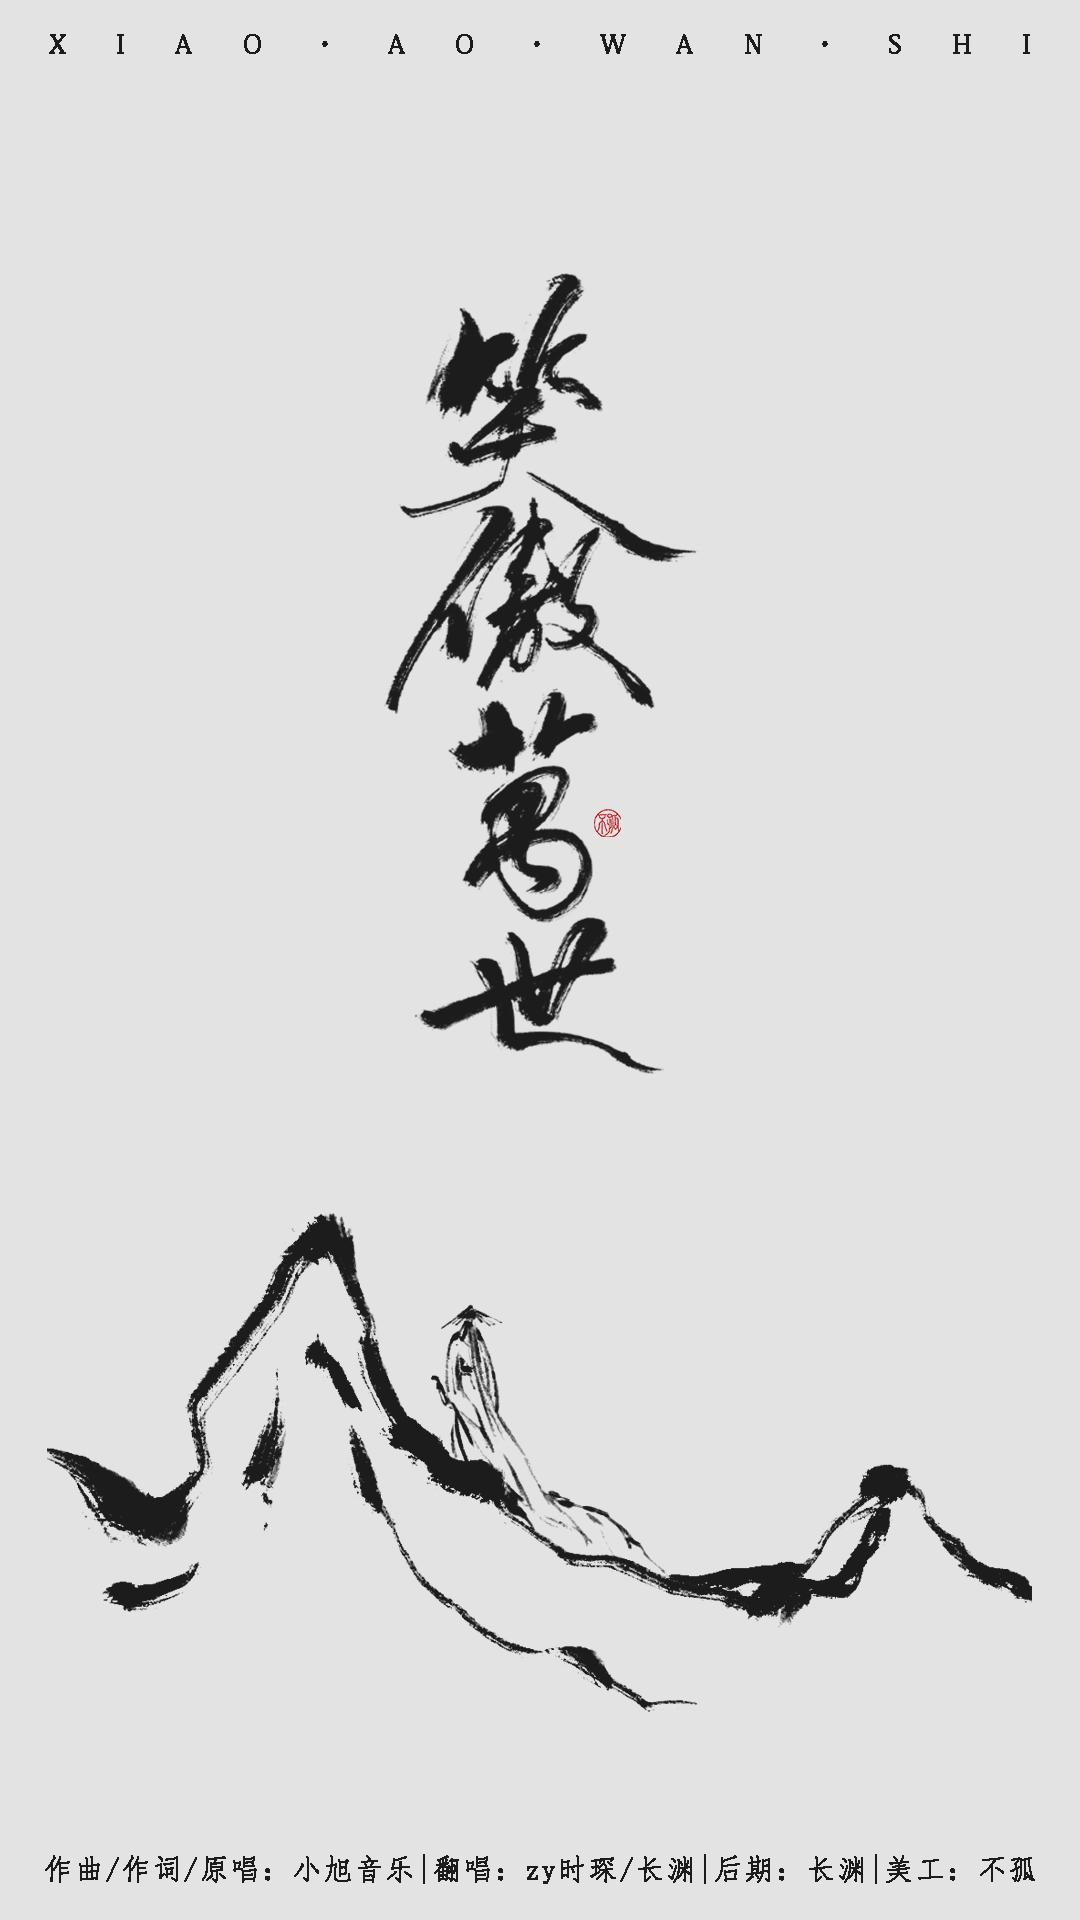 XIAO·AO·WAN·SHI
笑傲萬世
不孤
作曲/作词/原唱：小旭音乐|翻唱：zy时琛/长渊|后期：长渊|美工：不孤